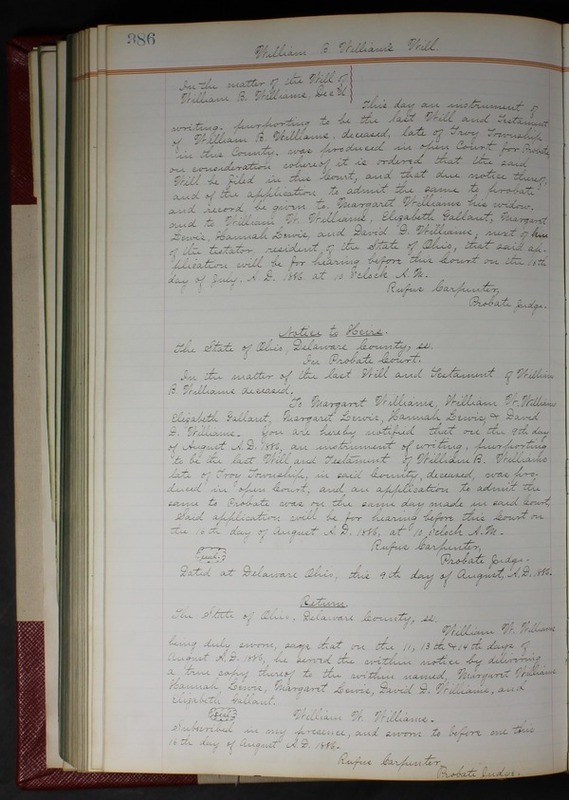 386
William B. Williams Will.
In the matter of the Will of
William B. Williams, Dec'd
This day an instrument of
writing, purporting to be the last Will and Testament
of William B. Williams, deceased, late of Troy Township
in this County, was produced in open Court for Probate,
on consideration whereof it is ordered that the said
Will be filed in this Court, and that due notice thereof,
and of the application to admit the same to probate
and record be given to Margaret Williams his widow,
and to William W. Williams, Elizabeth Gallant, Margaret
Lewis, Hannah Lewis, and David D. Williams, next of kin
of the testator, resident of the State of Ohio, that said ap-
plication will be for hearing before this Court on the 16th
day of July, A.D. 1886 at 10 O'clock A.M.
Rufus Carpenter,
Probate Judge.
Notice to Heirs.
The State of Ohio, Delaware County, ss.
In Probate Court.
In the matter of the last Will and Testament of William
B. Williams deceased,
To Margaret Williams, William W. Williams
Elizabeth Gallant, Margaret Lewis, Hannah Lewis, & David
D. Williams. You are hereby notified that on the 9th day
of August A.D. 1886, an instrument of writing, purporting
to be the last Will and Testament of William B. Williams
late of Troy Township, in said County, deceased, was pro-
duced in open Court, and an application to admit the
same to Probate was on the same day made in said Court
Said application will be for hearing before this Court on
the 16th day of August A.D. 1886, at 10 O'clock A.M.
Rufus Carpenter,
seal
Probate Judge.
Dated at Delaware Ohio, this 9th day of August, A.D. 1886.
Return
The State of Ohio, Delaware County, ss.
William W. Williams
being duly sworn, says that on the 11, 13th & 14th days of
August A.D. 1886, he served the within notice by delivering
a true copy thereof to the within named, Margaret Williams
Hannah Lewis, Margaret Lewis, David D. Williams, and
Elizabeth Gallant.
seal William W. Williams.
Subscribed in my presence, and sworn to before me this
16th day of August A.D. 1886.
Rufus Carpenter
Probate Judge.